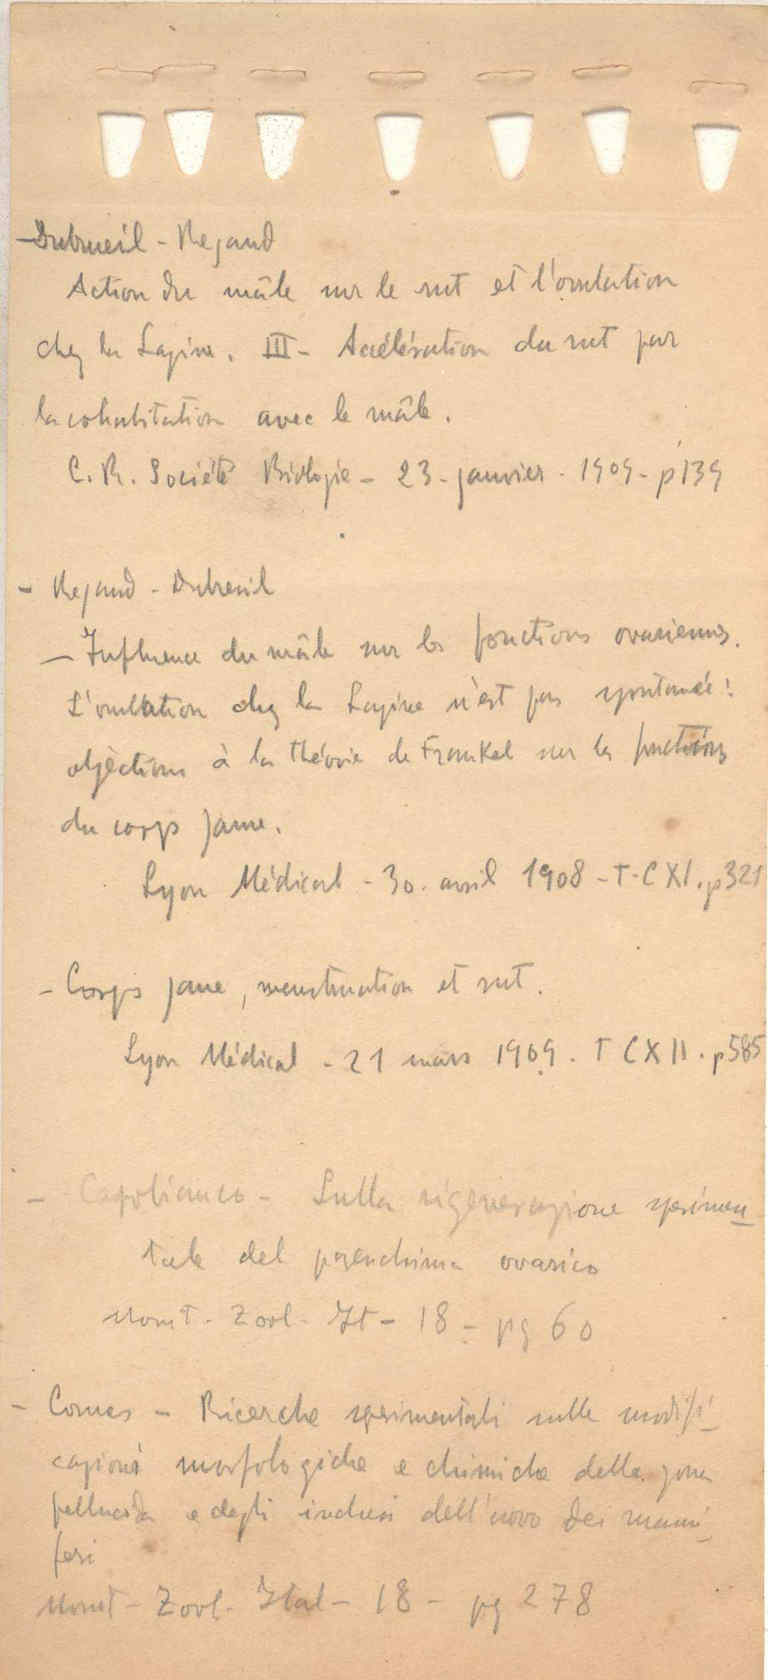 - Dubreuil - Regaud
Action du mâle sur le rut et l'ovulation
chez la Lapine. III - Accélération du rut par
la cohabitation avec le mâle.
C. R. Société Biologie - 23 - janvier - 1909 - p 139
- Regaud - Dubreuil
- Influence du mâle sur les fonctions ovariennes.
L'ovulation chez la Lapine n'est pas spontanée:
objections à la théorie de Frankel sur les fonctions
du corps jaune.
Lyon Médical - 30. avril 1908 - T. CXI. p321
- Corps jaune, menstruation et rut.
Lyon Médical - 21 mars 1909. T CXII. p585
- Capobianco - Sulla rigenerazione sperimen
tale del parenchima ovarico
Monit. Zool. It - 18 - pg 60
- Comes - Ricerche sperimentali sulle modifi
cazioni morfologiche e chimiche della zona
pellucida e degli inclusi dell'uovo dei mami
feri
Monit - Zool. Ital - 18 - pg 278